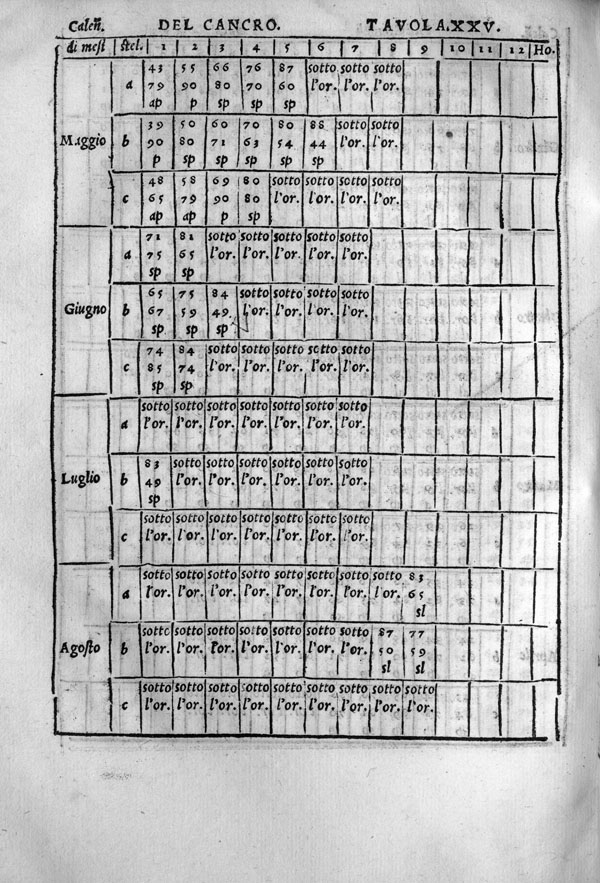 Caleñ. DEL CANCRO. TAVOLA.XXV.
di mesi stel. 1 2 3 4 5 6 7 8 9 10 11 12 Ho.
43 55 66 76 87 sotto sotto sotto
a 79 90 80 70 60 l'or. l'or. l'or.
ap p sp sp sp
39 50 60 70 80 88 sotto sotto
Maggio b 90 80 71 63 54 44 l'or. l'or.
p sp sp sp sp sp
48 58 69 80 sotto sotto sotto sotto
c 65 79 90 80 l'or. l'or. l'or. l'or.
ap ap p sp
71 81 sotto sotto sotto sotto sotto
a 75 65 l'or. l'or. l'or. l'or. l'or.
sp sp
65 75 84 sotto sotto sotto sotto
Giugno b 67 59 49. l'or. l'or. l'or. l'or.
sp sp sp
74 84 sotto sotto sotto sotto sotto
c 85 74 l'or. l'or. l'or. l'or. l'or.
sp sp
sotto sotto sotto sotto sotto sotto sotto
a l'or. l'or. l'or. l'or. l'or. l'or. l'or.
83 sotto sotto sotto sotto sotto sotto
Luglio b 49 l'or. l'or. l'or. l'or. l'or. l'or.
sp
sotto sotto sotto sotto sotto sotto sotto
c l'or. l'or. l'or. l'or. l'or. l'or. l'or.
sotto sotto sotto sotto sotto sotto sotto sotto 83
a l'or. l'or. l'or. l'or. l'or. l'or. l'or. l'or. 65
sl
sotto sotto sotto sotto sotto sotto sotto 87 77
Agosto b l'or. l'or. l'or. l'or. l'or. l'or. l'or. 50 59
sl sl
sotto sotto sotto sotto sotto sotto sotto sotto sotto
c l'or. l'or. l'or. l'or. l'or. l'or. l'or. l'or. l'or.